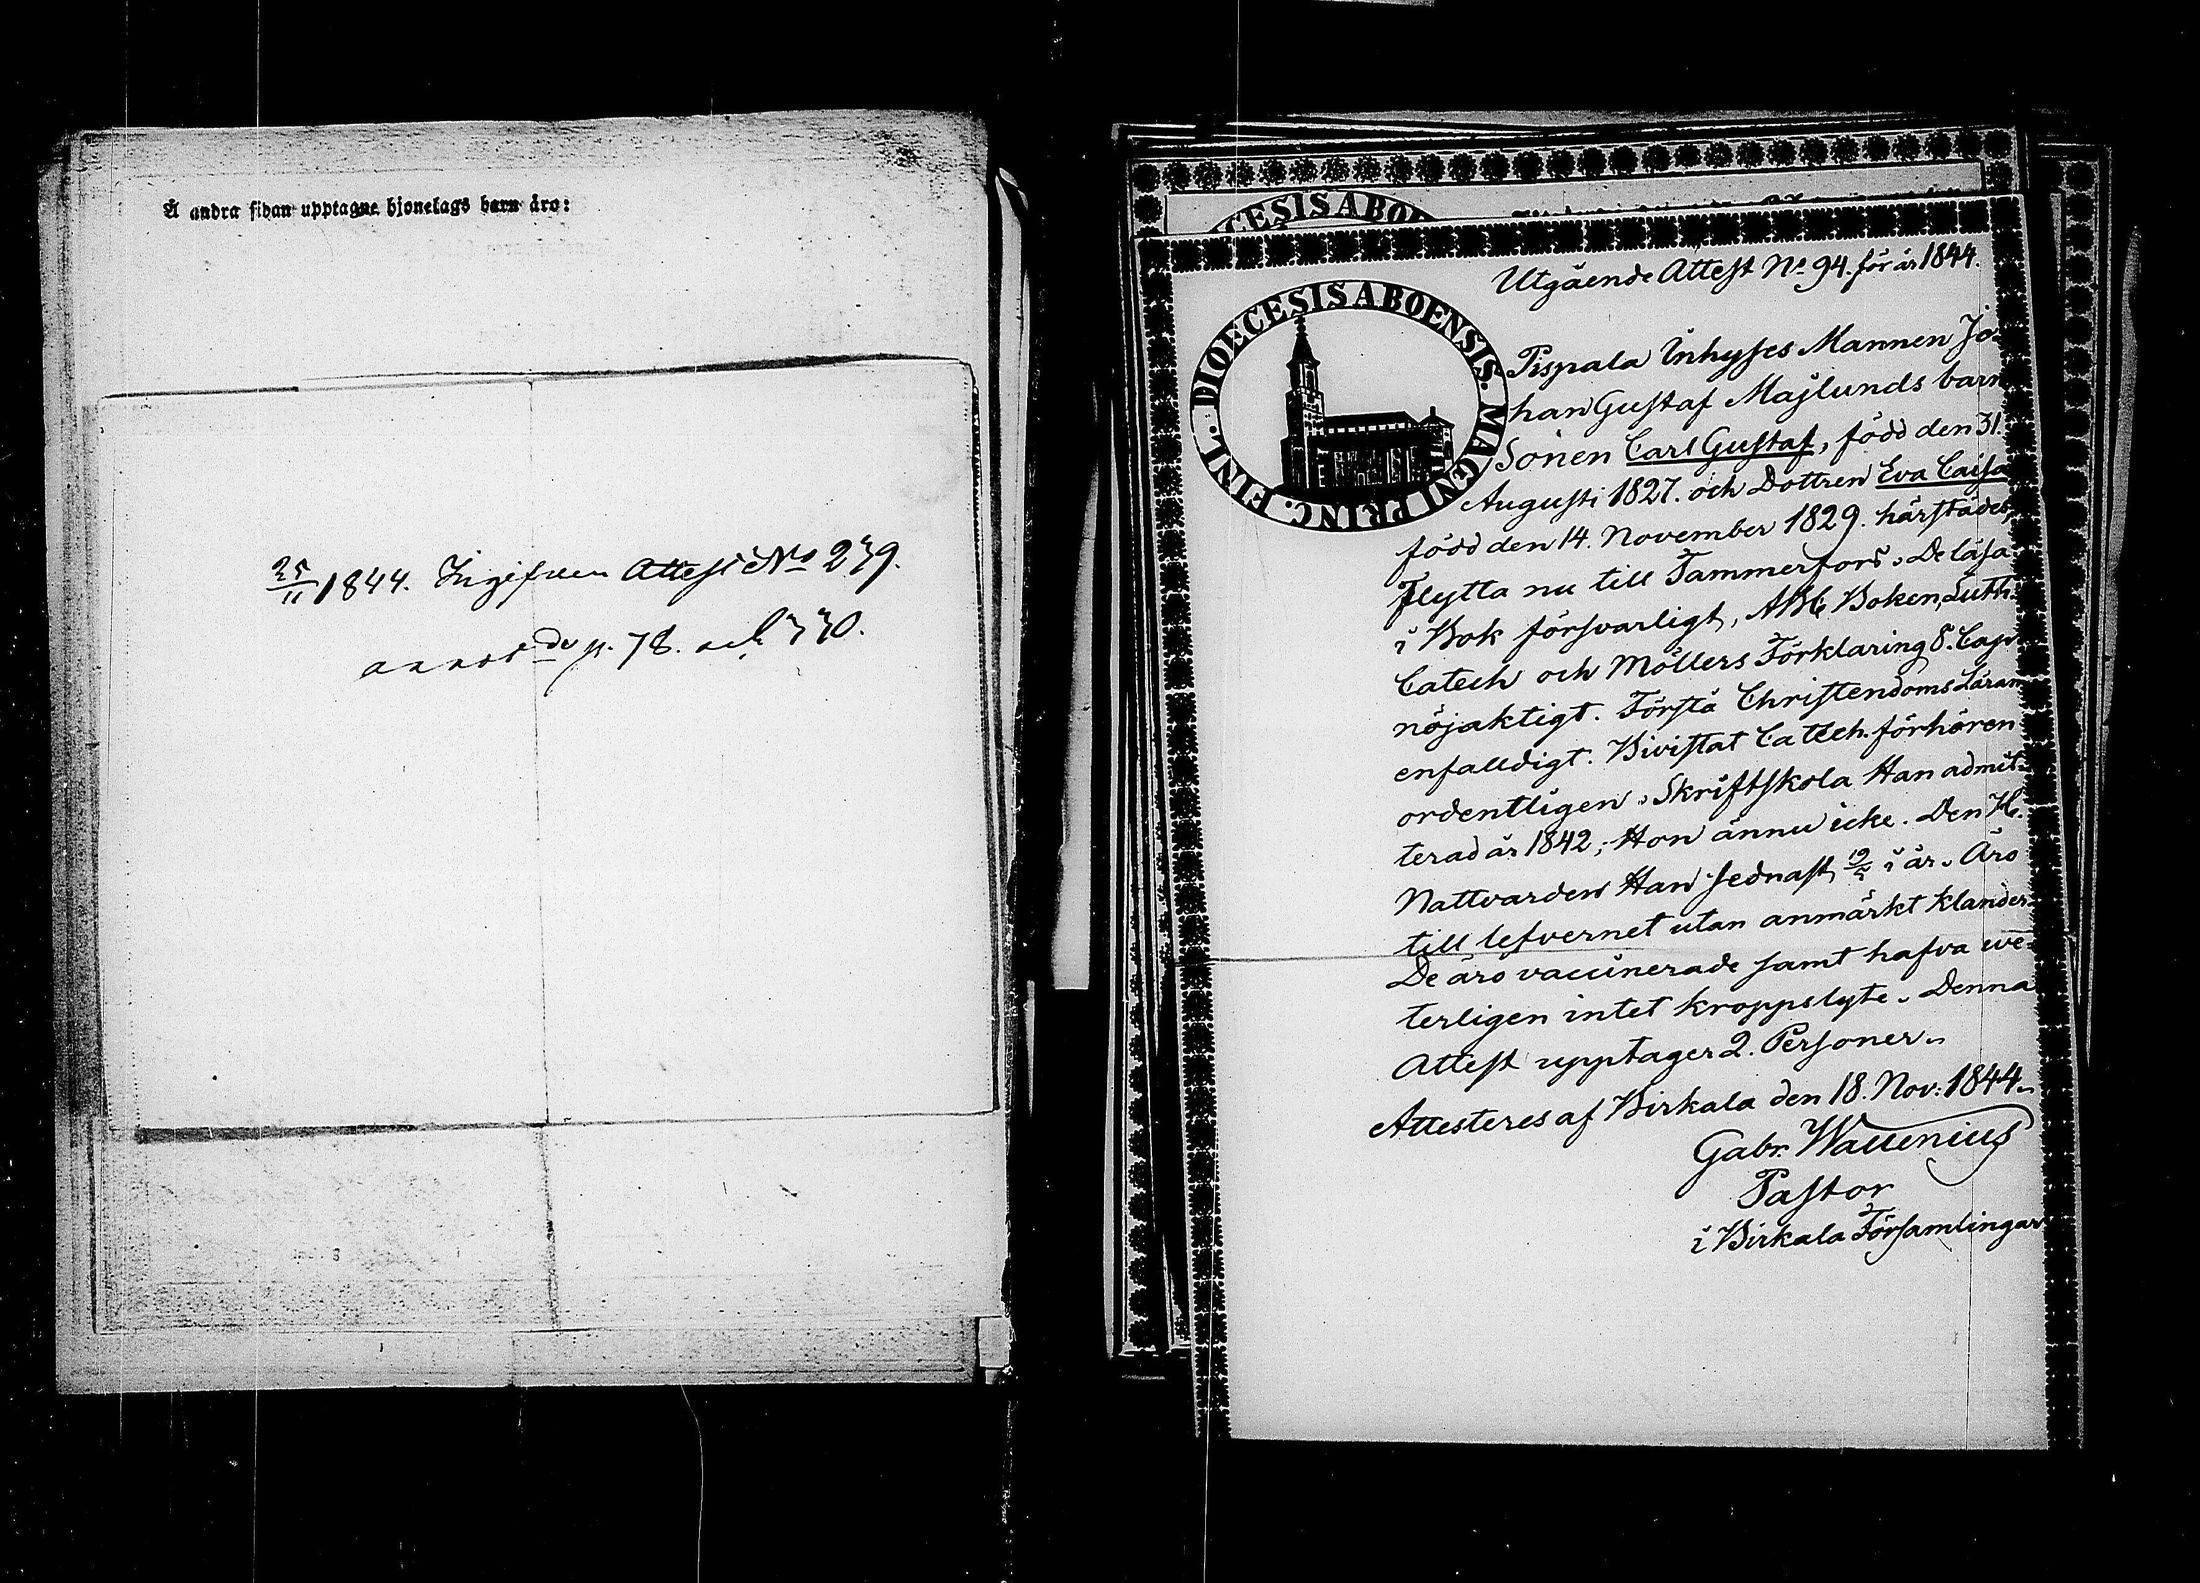 Å andra sidan upptagne hjonelags barn äro:
25/11 1844. Ingifven Attest No 239.
annot:de p. 78. och 330.
CESIS ABO
DIOECESIS ABOENSIS. MAGNI PRINC. FINL.
Utgående Attest No 94. för år 1844.
Pispala Inhyses Mannen Jo-
han Gustaf Majlunds barn
Sonen Carl Gustaf, född den 31.
Augusti 1827. och Dottren Eva Caisa
född den 14. November 1829. härstädes,
Flytta nu till Tammerfors. De läsa
i Bok försvarligt, ABC Boken, Luth:
Catech och Möllers Förklaring 8. Cap.
nöjaktigt. Förstå Christendoms Läran
enfalldigt. Bivistat Catech. förhören
ordentligen. Skriftskola Han admit-
terad år 1842; Hon ännu icke. Den H.
Nattvarden Han sednast i år. Äro
till lefvernet utan anmärkt klander.
De äro vaccinerade samt hafva we-
terligen intet kroppslyte. Denna
Attest upptager 2. Personer.
Attesteres af Birkala den 18. Nov: 1844.
Gabr. Wallenius
Pastor
i Birkala Församlingar